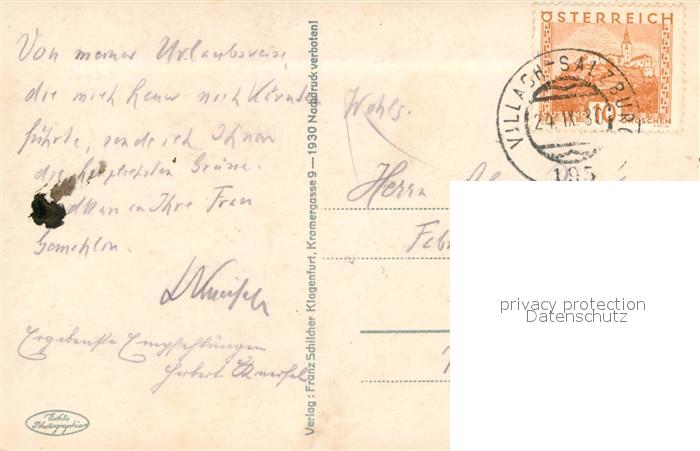 Von meiner Urlaubsreise,
die mich heuer nach Kärnten
führte, sende ich Ihnen
die herzlichsten Grüsse.
Ihre Frau
Gemahlin.
Ergebenste Empfehlungen
Herbert
Echte
Photographie
Verlag: Franz Schilcher Klagenfurt, Kramergasse 9 — 1930 Nachdruck verboten!
ÖSTERREICH
10
GROSCHEN
VILLACH-SALZBURG
24.IX.31
195
Wohlg.
Herrn
privacy protection
Datenschutz